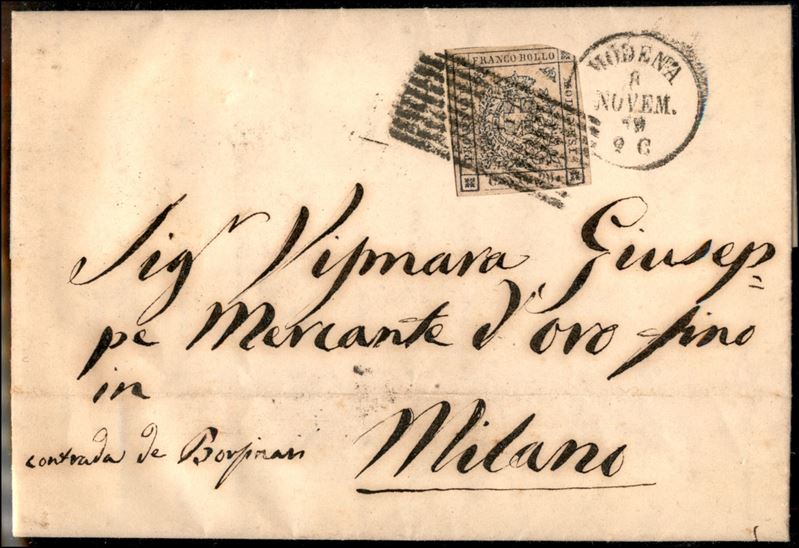 FRANCO BOLLO
MODENA
8
NOVEM.
59
Sigr Vismara Giusep=
pe Mercante d'oro fino
in
contrada de Borsinari
Milano